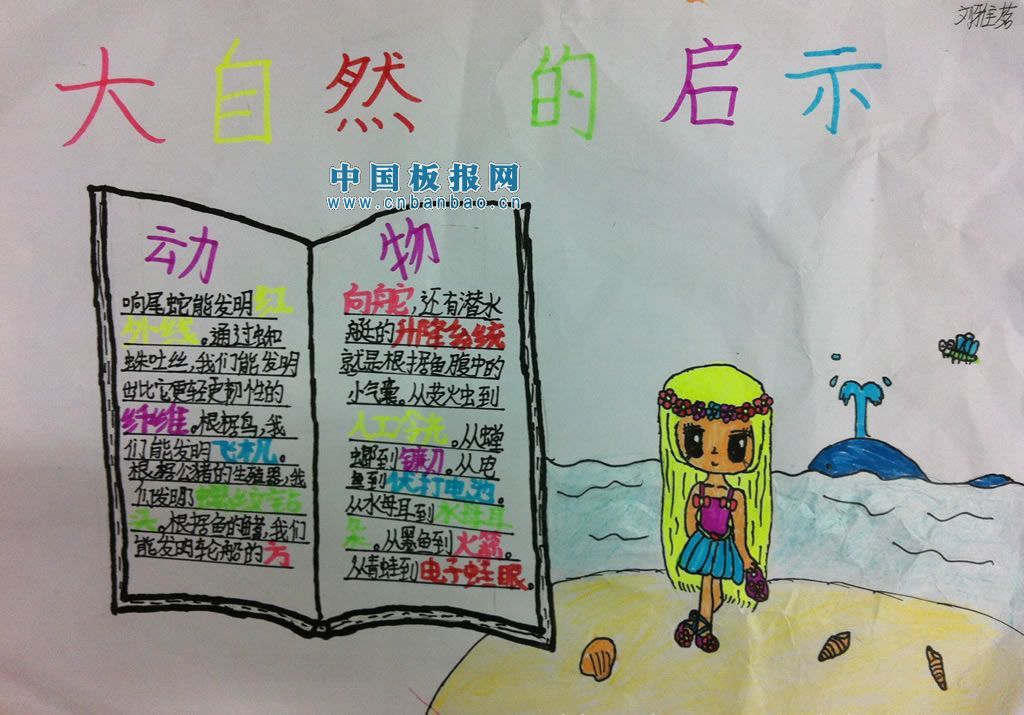 大自然的启示
中国板报网
www.cnbanbao.cn
动
响尾蛇能发明红
外线。通过蜘
蛛吐丝,我们能发明
出比它更轻更韧性的
纤维。根据鸟,我
们能发明飞机。
根据公猪的生殖器,我
们发明钻
头。根据鱼的鳍,我们
能发明轮船的方
物
向舵,还有潜水
艇的升降系统
就是根据鱼腹中的
小气囊。从萤火虫到
人工冷光。从螳
螂到镰刀。从电
鱼到伏打电池。
从水母耳到水母耳
朵。从墨鱼到火箭。
从青蛙到电子蛙眼。